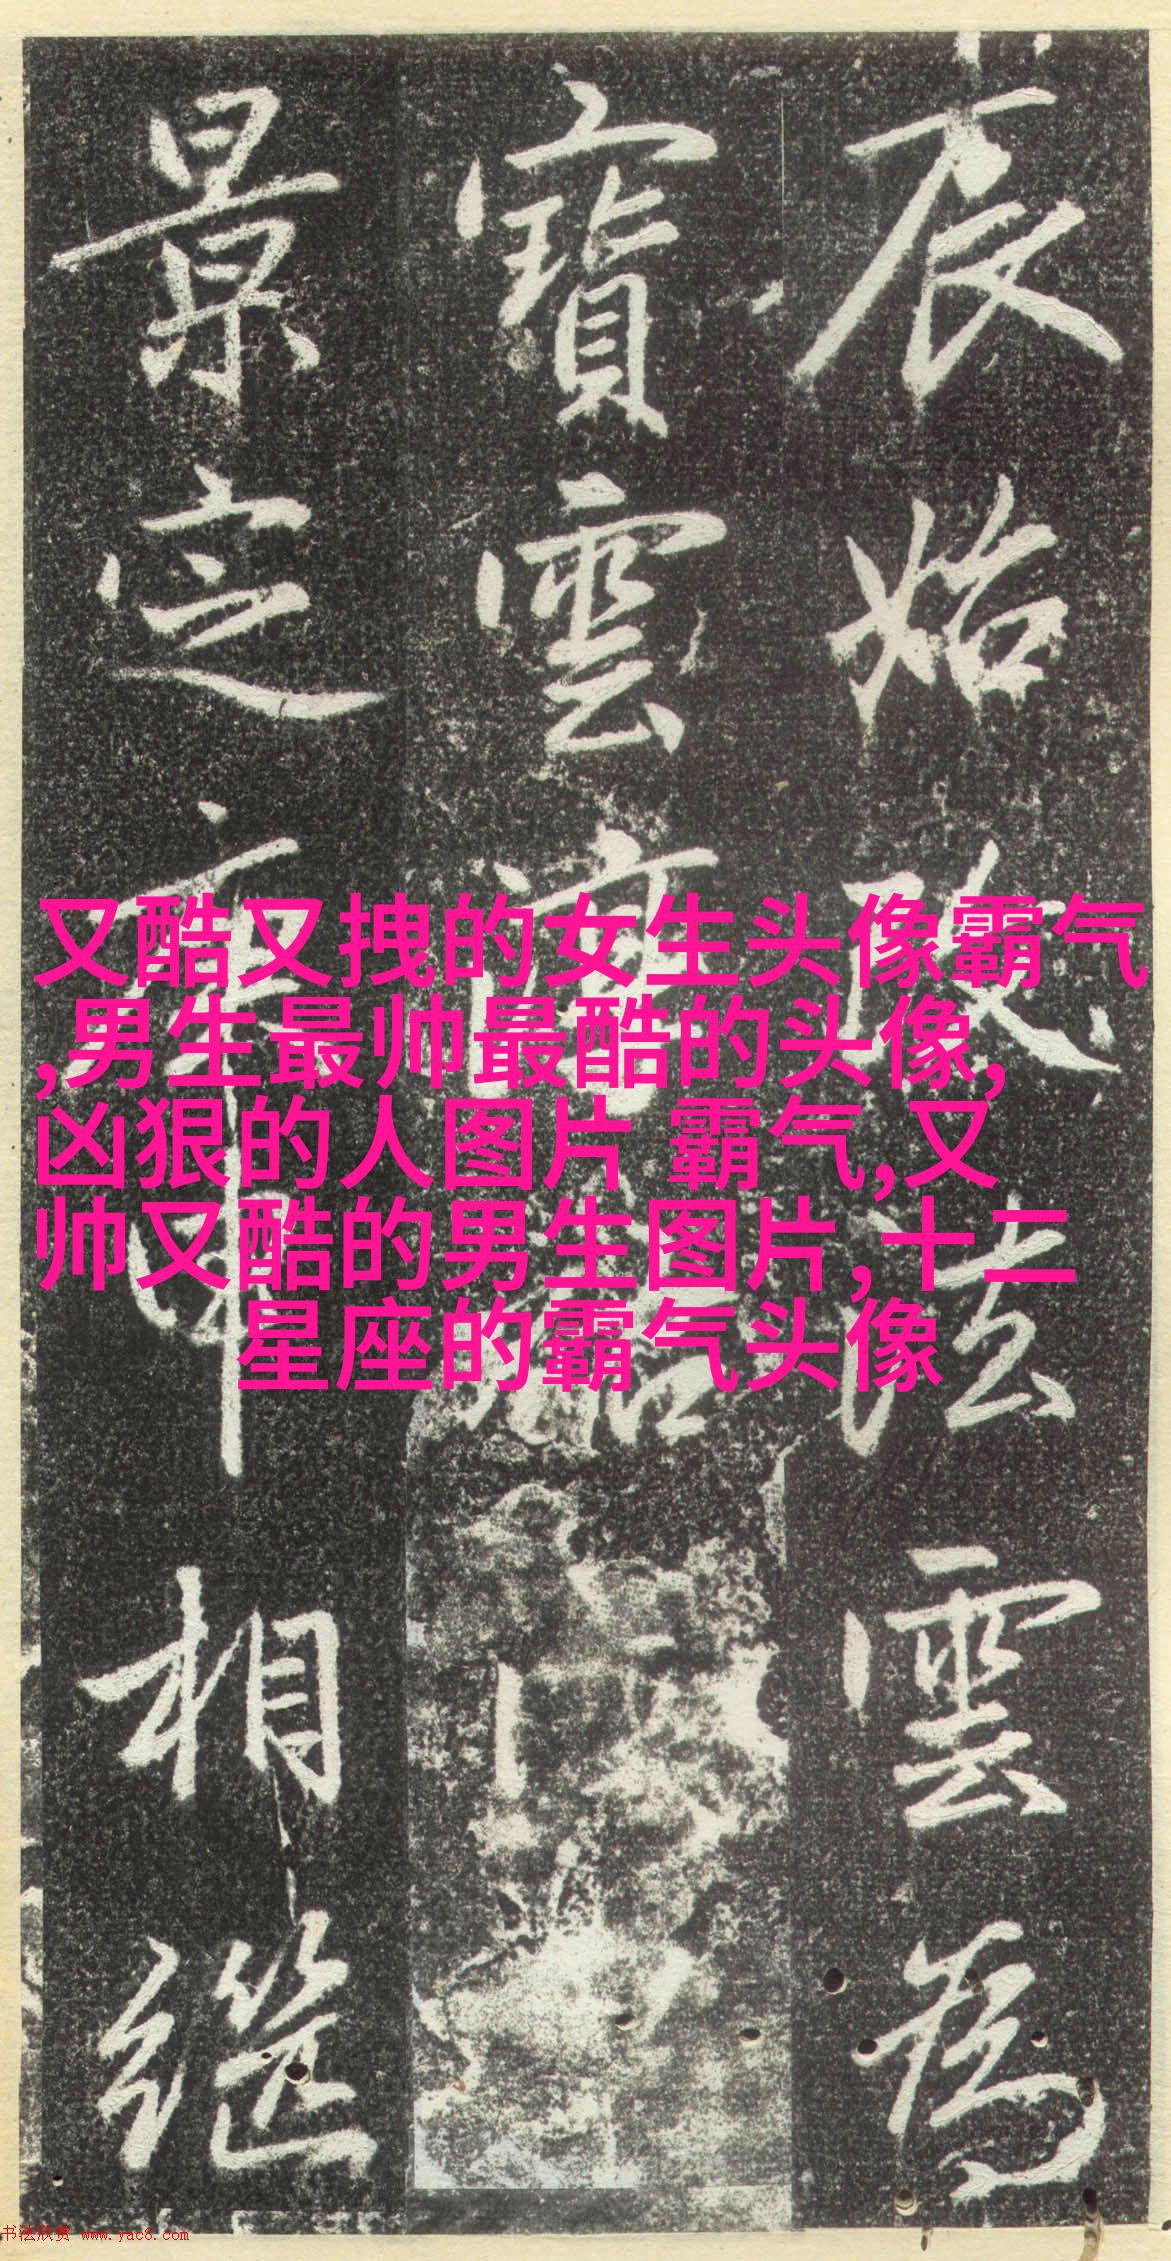 辰始改法雲為
寶雲
景定庚申相繼
又酷又拽的女生头像霸气
,男生最帅最酷的头像,
凶狠的人图片 霸气,又
帅又酷的男生图片,十二
星座的霸气头像
书法欣赏 www.yac8.com